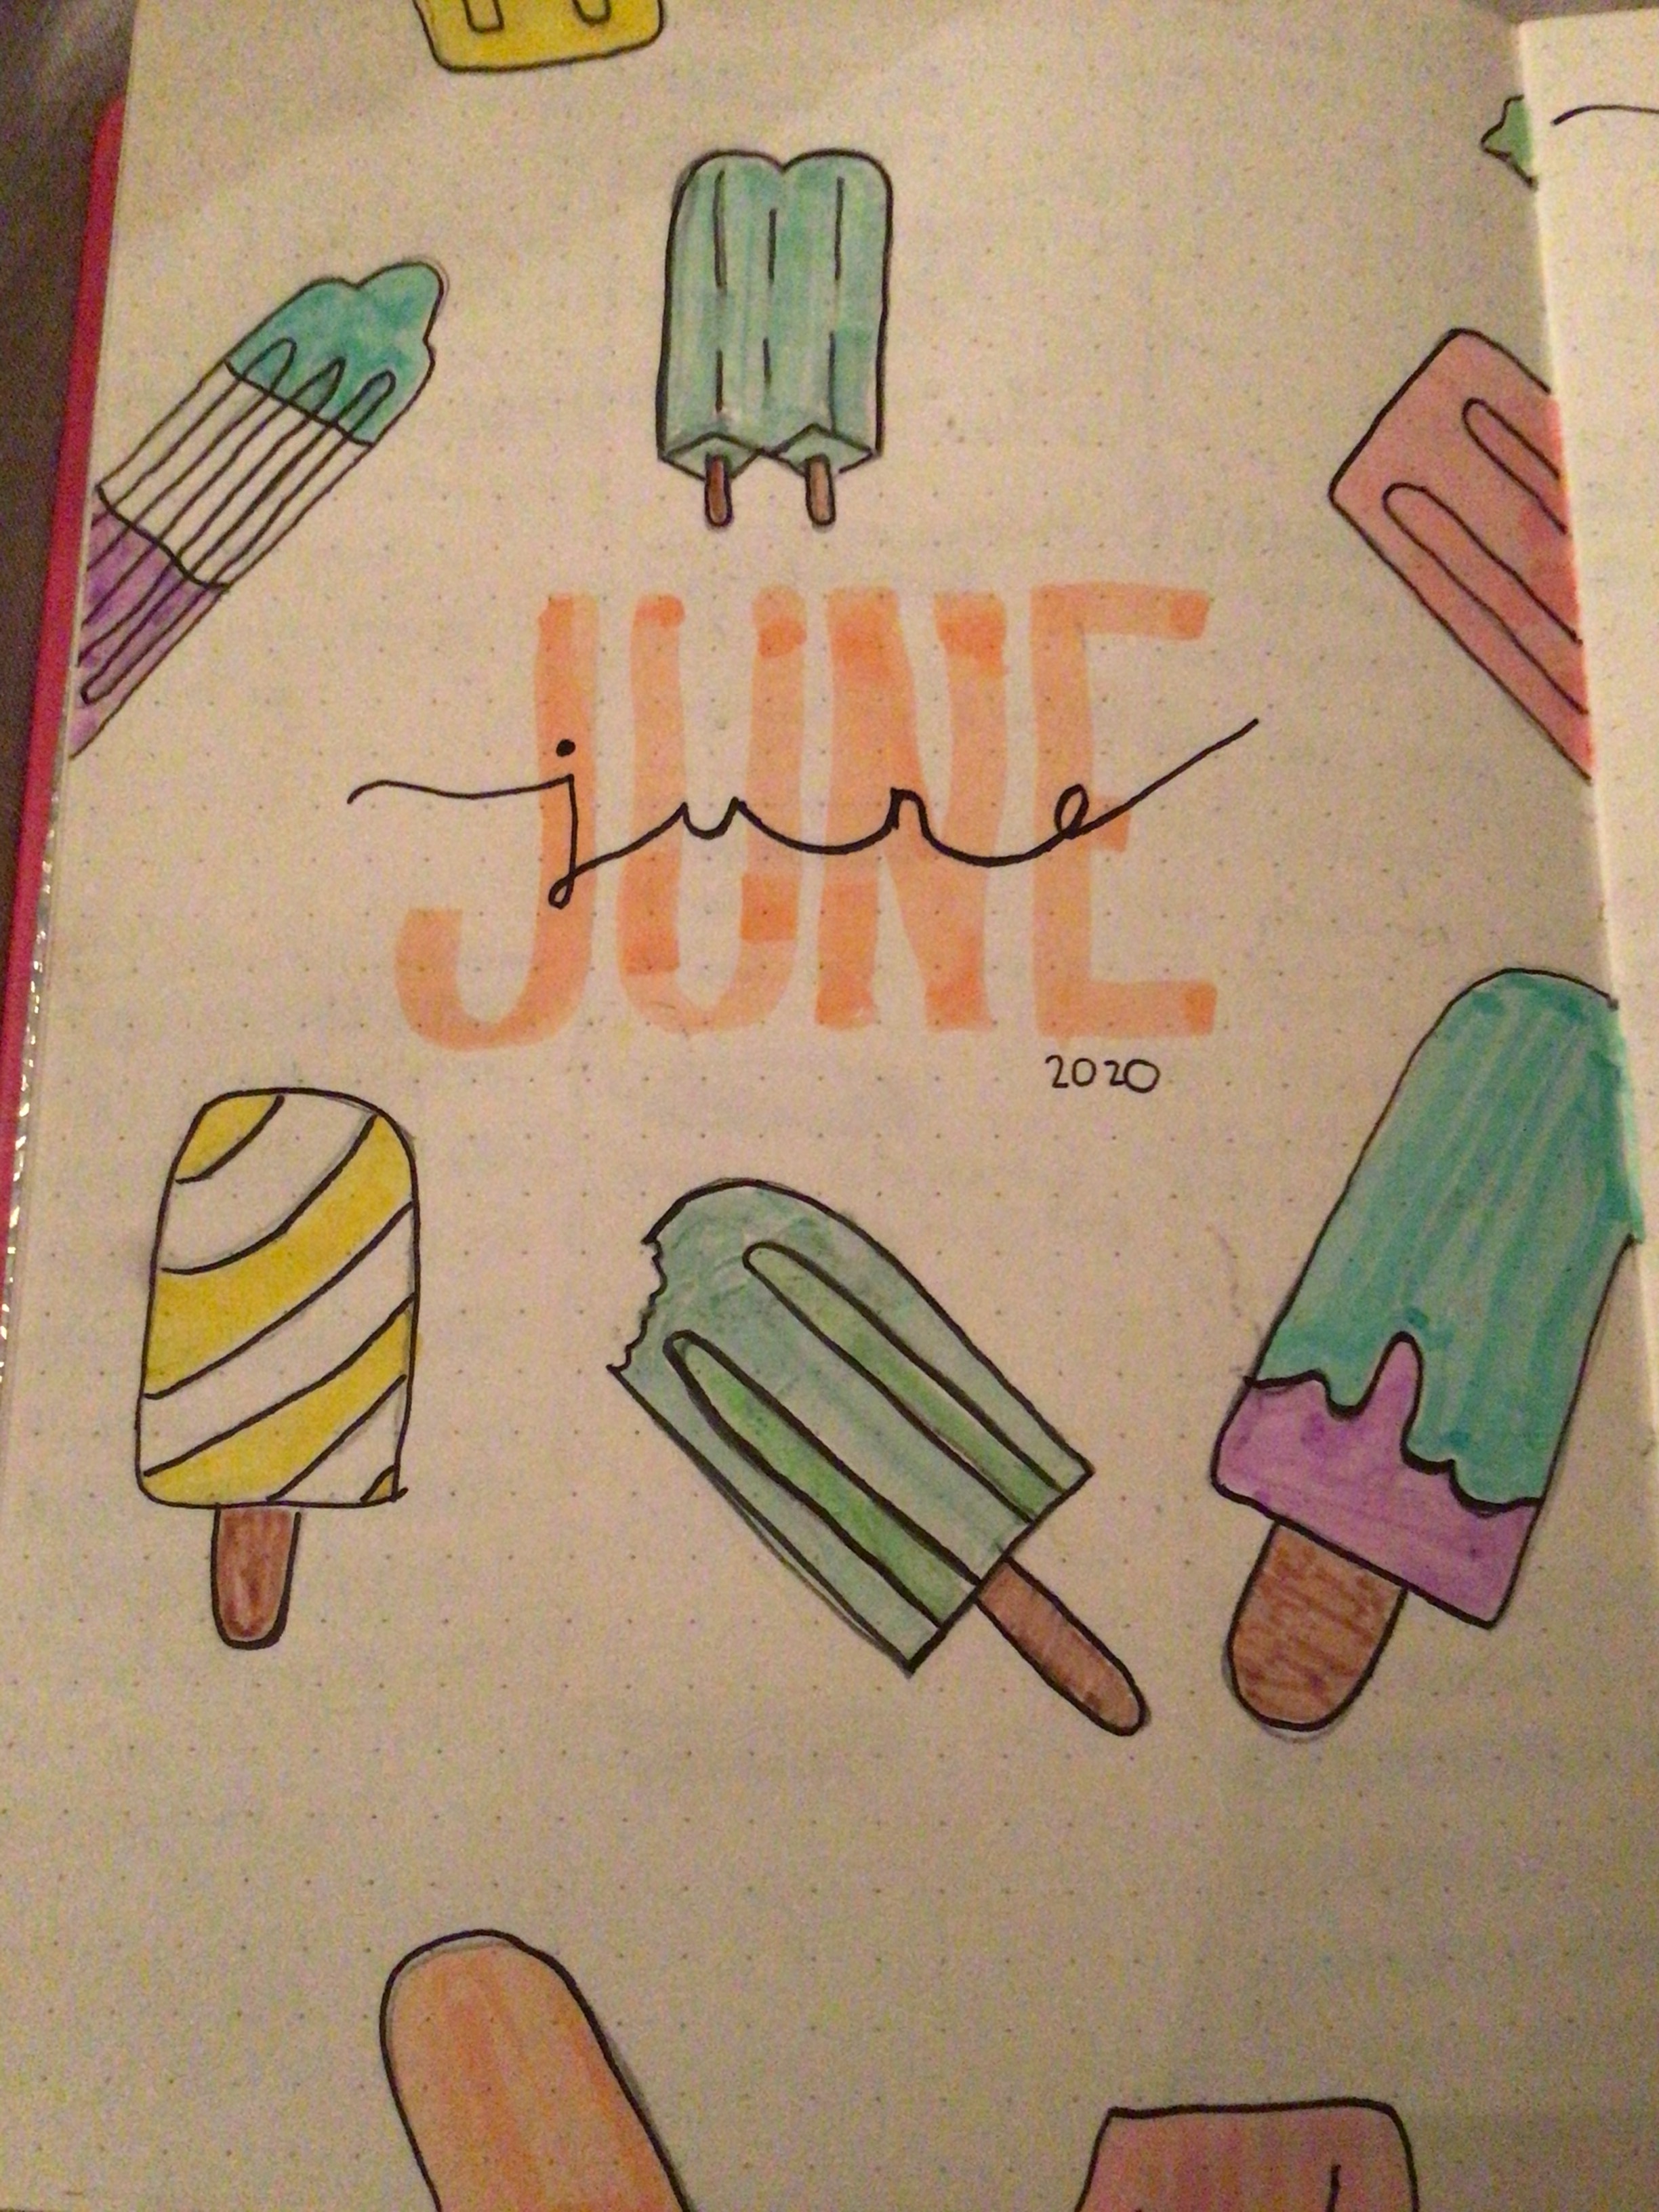 JUNE
june
2020